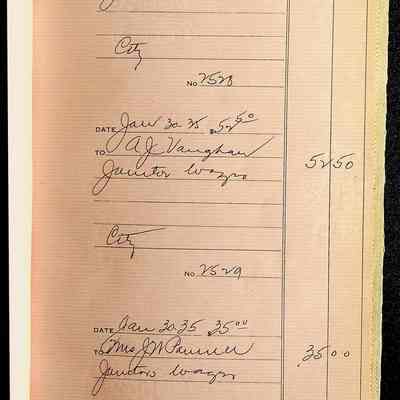 City
No. 2528
DATE Jan 30 35 $52.50
TO A J Vaughan
Janitor Wages 52 50
City
No. 2529
DATE Jan 30 35 $35.00
TO Mrs J W
Janitors wages 35 00